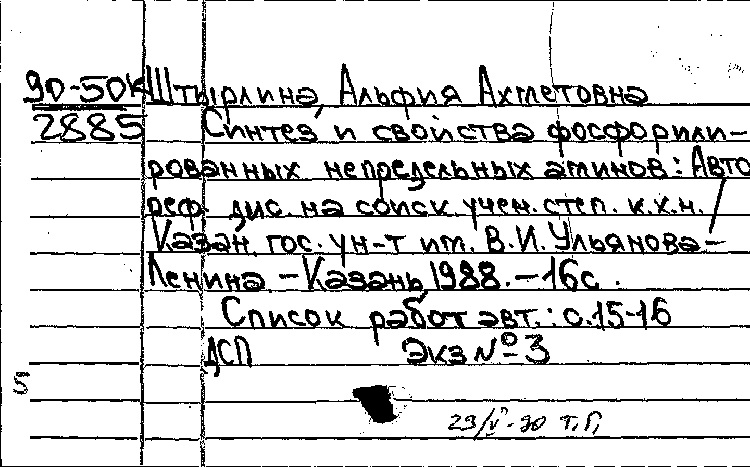 90-50к Штырлина, Альфия Ахметовна
2885 Синтез и свойства фосфорили-
рованных непредельных аминов: Авто
реф. дис. на соиск. учен. степ. к.х.н. /
Казан. гос. ун-т им. В.И. Ульянова-
Ленина. - Казань, 1988. - 16с.
Список работ авт.: с.15-16
ДСП Экз №3
5
29/V-90 Т.Г.